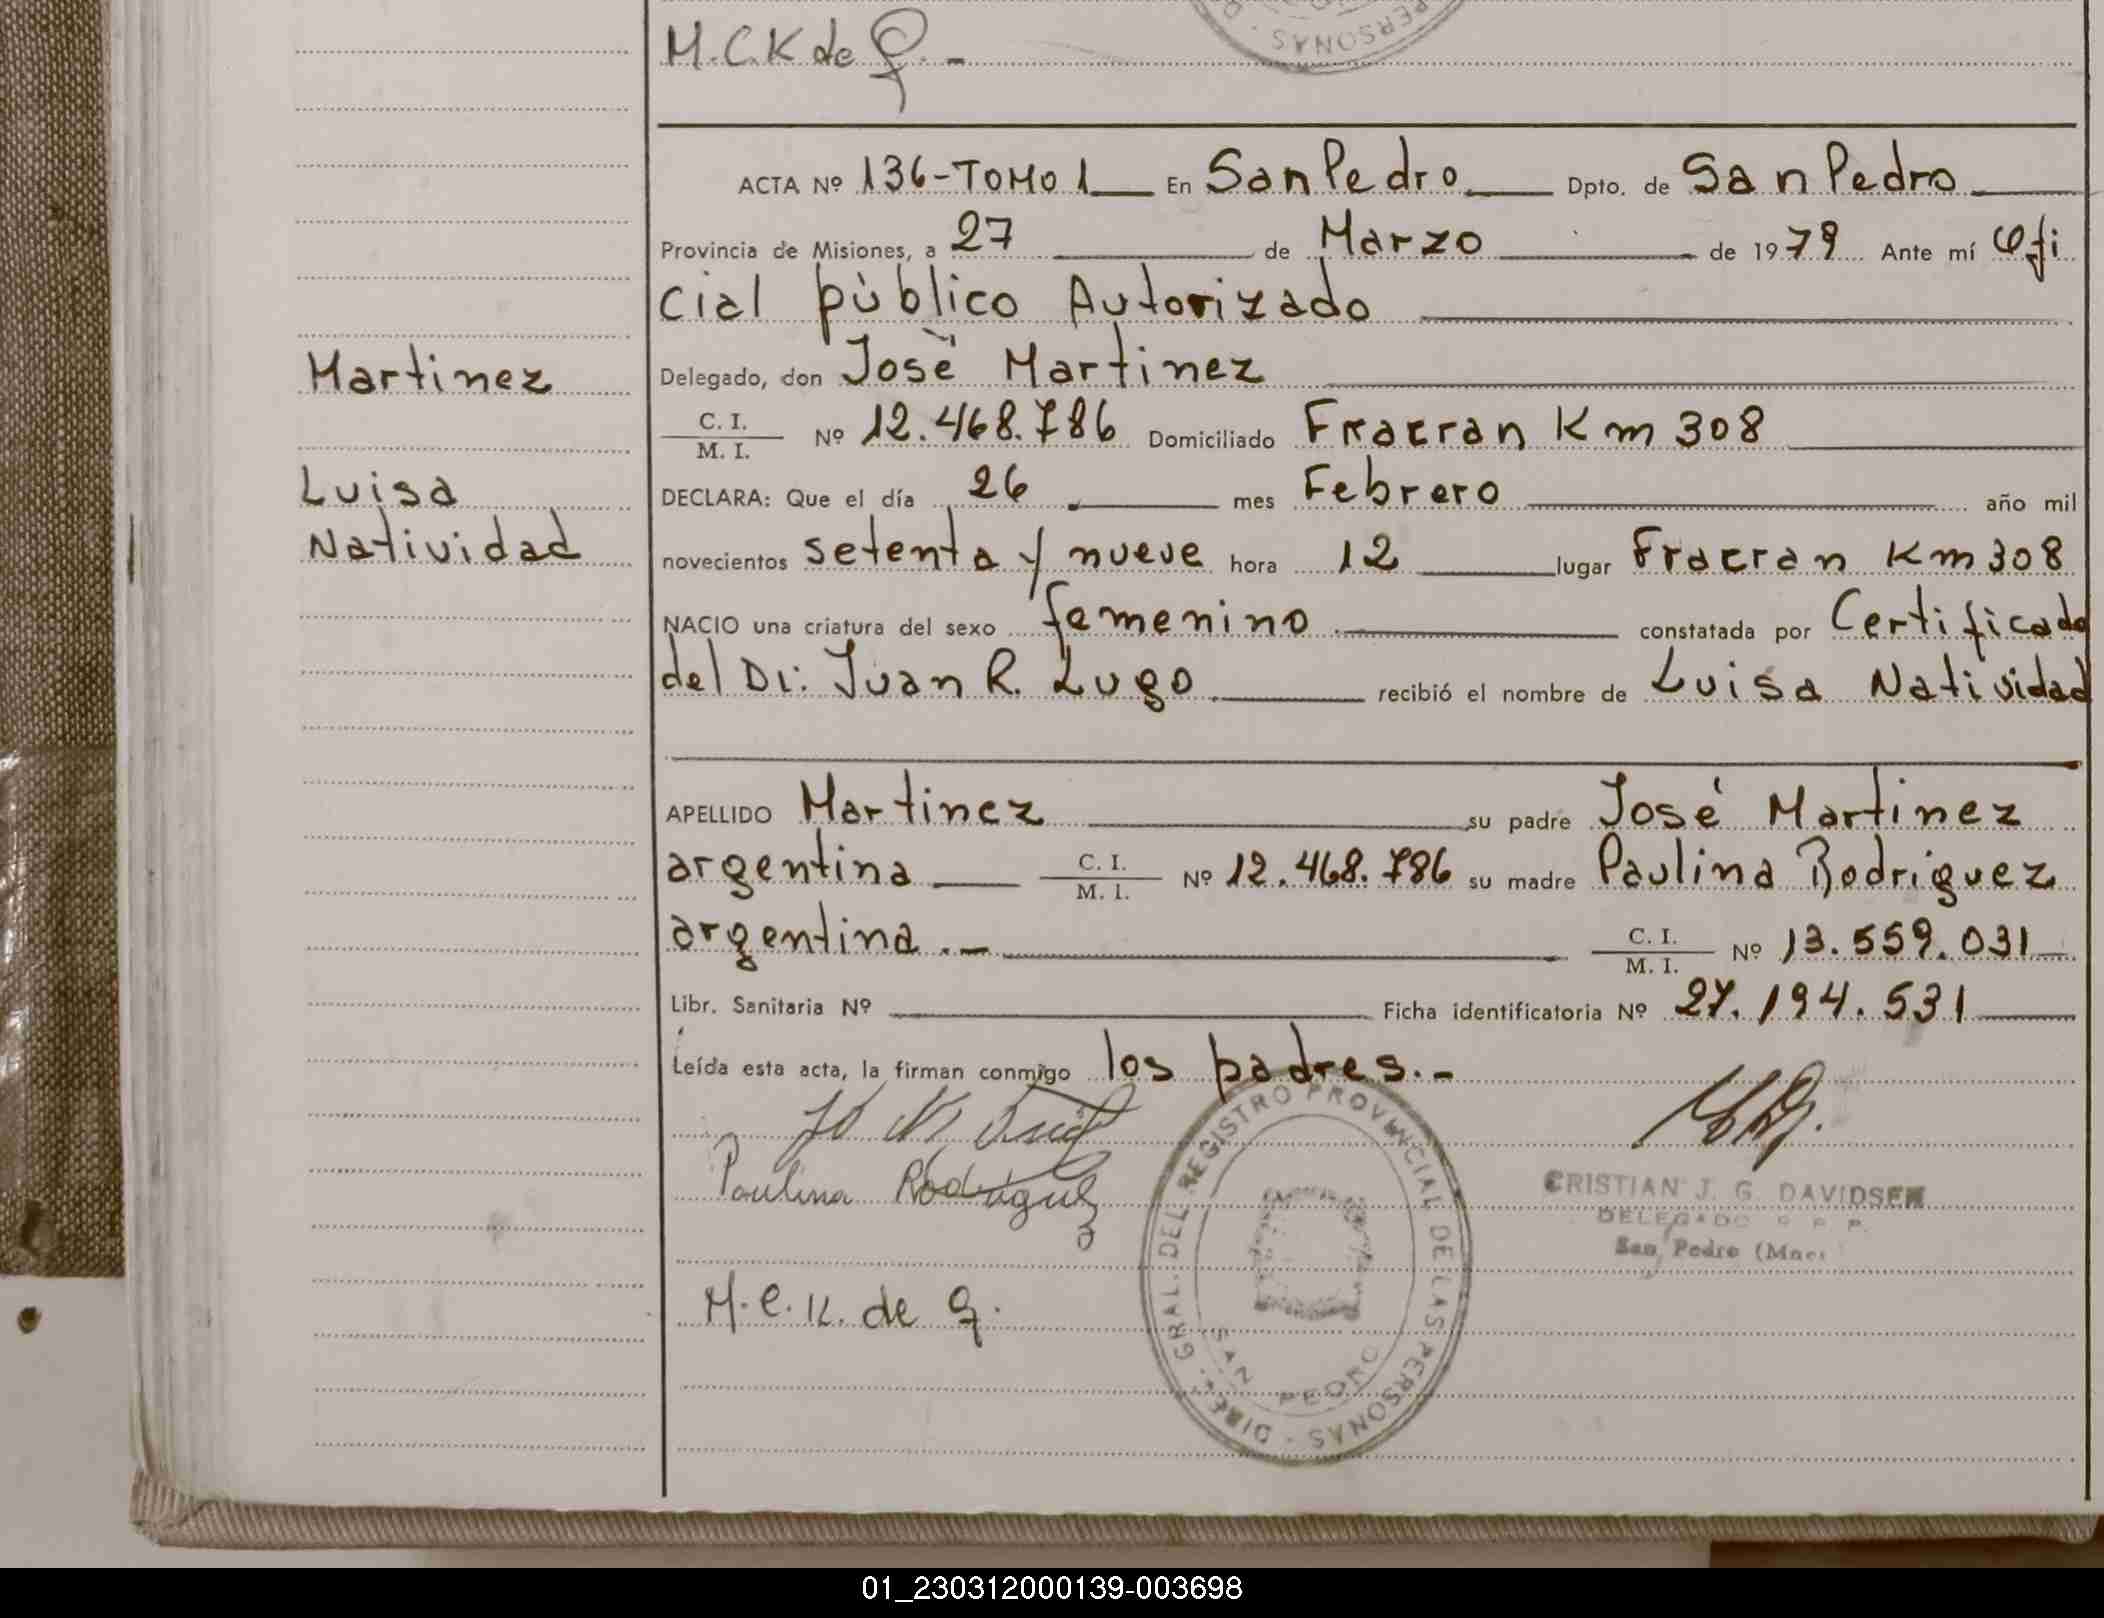 M.C.K de G. -
PERSONAS
ACTA Nº 136-TOMO 1 En San Pedro Dpto. de San Pedro
Provincia de Misiones, a 27 de Marzo de 1979 Ante mí Ofi
cial pùblico Autorizado
Martinez
Delegado, don José Martinez
C. I.
M. I. Nº 12.468.786 Domiciliado Fracran Km 308
Luisa
DECLARA: Que el día 26 mes Febrero año mil
Natividad
novecientos setenta y nueve hora 12 lugar Fracran Km 308
NACIO una criatura del sexo femenino constatada por Certificado
del Dr: Juan R. Lugo recibió el nombre de Luisa Natividad
APELLIDO Martinez su padre José Martinez
argentina C. I.
M. I. Nº 12.468.786 su madre Paulina Rodriguez
argentina.- C. I.
M. I. Nº 13.559.031
Libr. Sanitaria Nº Ficha identificatoria Nº 27.194.531
Leída esta acta, la firman conmigo los padres.-
Paulina Rodriguez
DIREC. GRAL. DEL REGISTRO PROVINCIAL DE LAS PERSONAS
SAN PEDRO
CRISTIAN J. G. DAVIDSEN
DELEGADO R. P. P.
San Pedro (Mnes
M.C.K. de G.
01_230312000139-003698